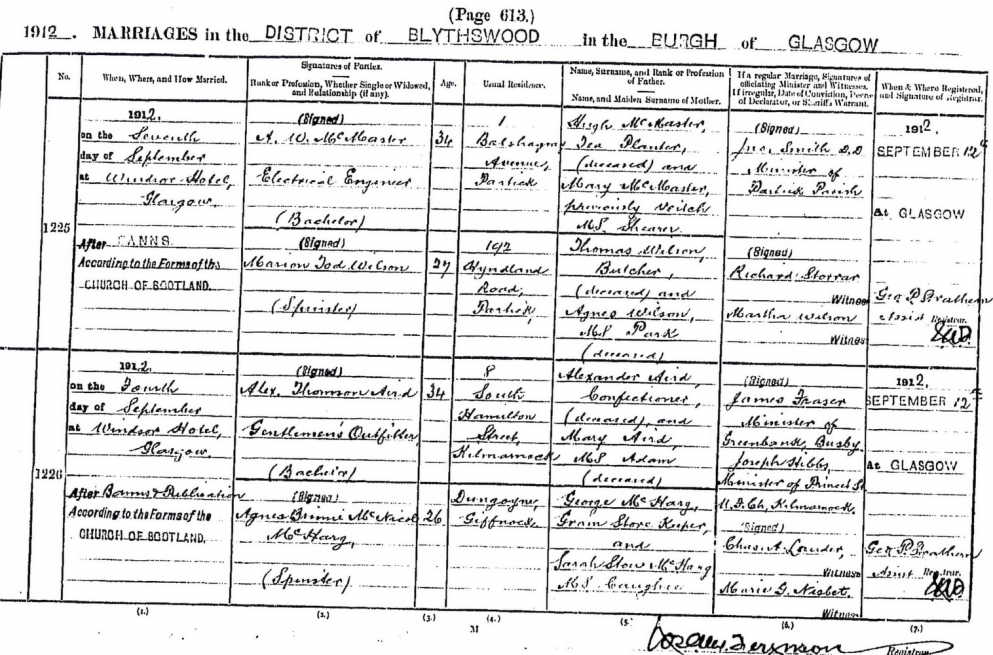 (Page 613.)
1912. MARRIAGES in the DISTRICT of BLYTHSWOOD in the BURGH of GLASGOW
No.
When, Where, and How Married.
Signatures of Parties.
Rank or Profession, Whether Single or Widowed, and Relationship (if any).
Age.
Usual Residence.
Name, Surname, and Rank or Profession of Father.
Name, and Maiden Surname of Mother.
If a regular Marriage, Signatures of officiating Minister and Witnesses.
If irregular, Date of Conviction, Decree of Declarator, or Sheriff's Warrant.
When & Where Registered, and Signature of Registrar.
1225
1912,
on the Seventh
day of September
at Windsor Hotel,
Glasgow.
After BANNS
According to the Forms of the
CHURCH OF SCOTLAND.
(Signed)
A. W. McMaster
Electrical Engineer
(Bachelor)
(Signed)
Marion Tod Wilson
(Spinster)
34
27
1
Balshagray
Avenue,
Partick
192
Hyndland
Road,
Partick
Hugh McMaster,
Tea Planter,
(deceased) and
Mary McMaster,
previously Veitch
M.S. Shearer
Thomas Wilson,
Butcher,
(deceased) and
Agnes Wilson,
M.S. Park
(deceased)
(Signed)
Smith D.D
Minister of
Partick Parish
(Signed)
Richard Storrar
Witness
Martha Wilson
Witness
1912,
SEPTEMBER 12th
At GLASGOW
Geo P. Strathern
Assist Registrar.
1226
1912,
on the Fourth
day of September
at Windsor Hotel,
Glasgow.
After Banns & Publication
According to the Forms of the
CHURCH OF SCOTLAND.
(Signed)
Alex. Thomson Aird
Gentlemen's Outfitter
(Bachelor)
(Signed)
Agnes Binnie McNicol
McHarg,
(Spinster)
34
26
8
South
Hamilton
Street,
Kilmarnock
Dungoyne,
Giffnock.
Alexander Aird,
Confectioner,
(deceased) and
Mary Aird
M.S. Adam
(deceased)
George McHarg,
Grain Store Keeper,
and
Sarah Stow McHarg
M.S. Caughie
(Signed)
James Fraser
Minister of
Greenbank, Busby
Joseph Hibbs,
Minister of Princes St
U.F.Ch, Kilmarnock.
(Signed)
Chas. A. Lauder,
Witness
Marie G. Nisbet.
Witness
1912,
SEPTEMBER 12th
At GLASGOW
Geo P. Strathern
Assist Registrar.
(1.) (2.) (3.) (4.) (5.) (6.) (7.)
M
Ferguson
Registrar